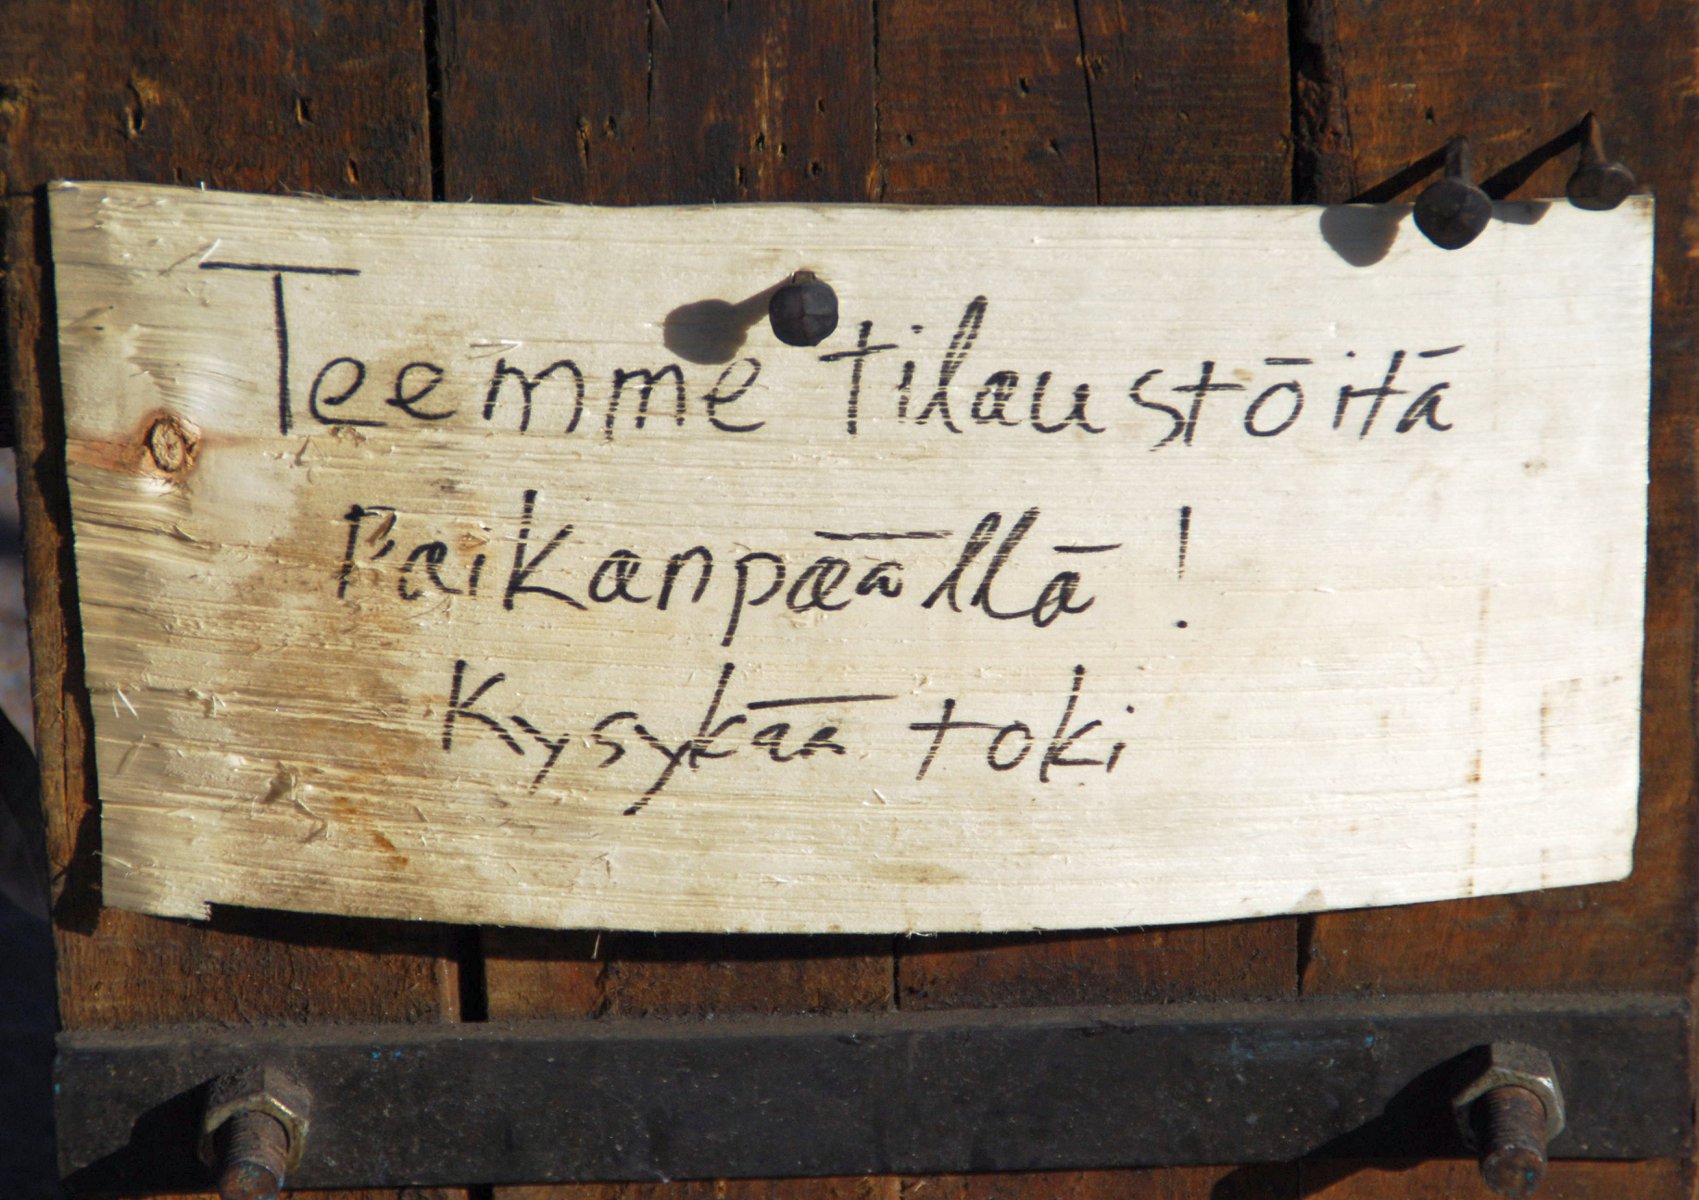 Teemme tilaustöitä
Paikanpäällä!
Kysykää toki